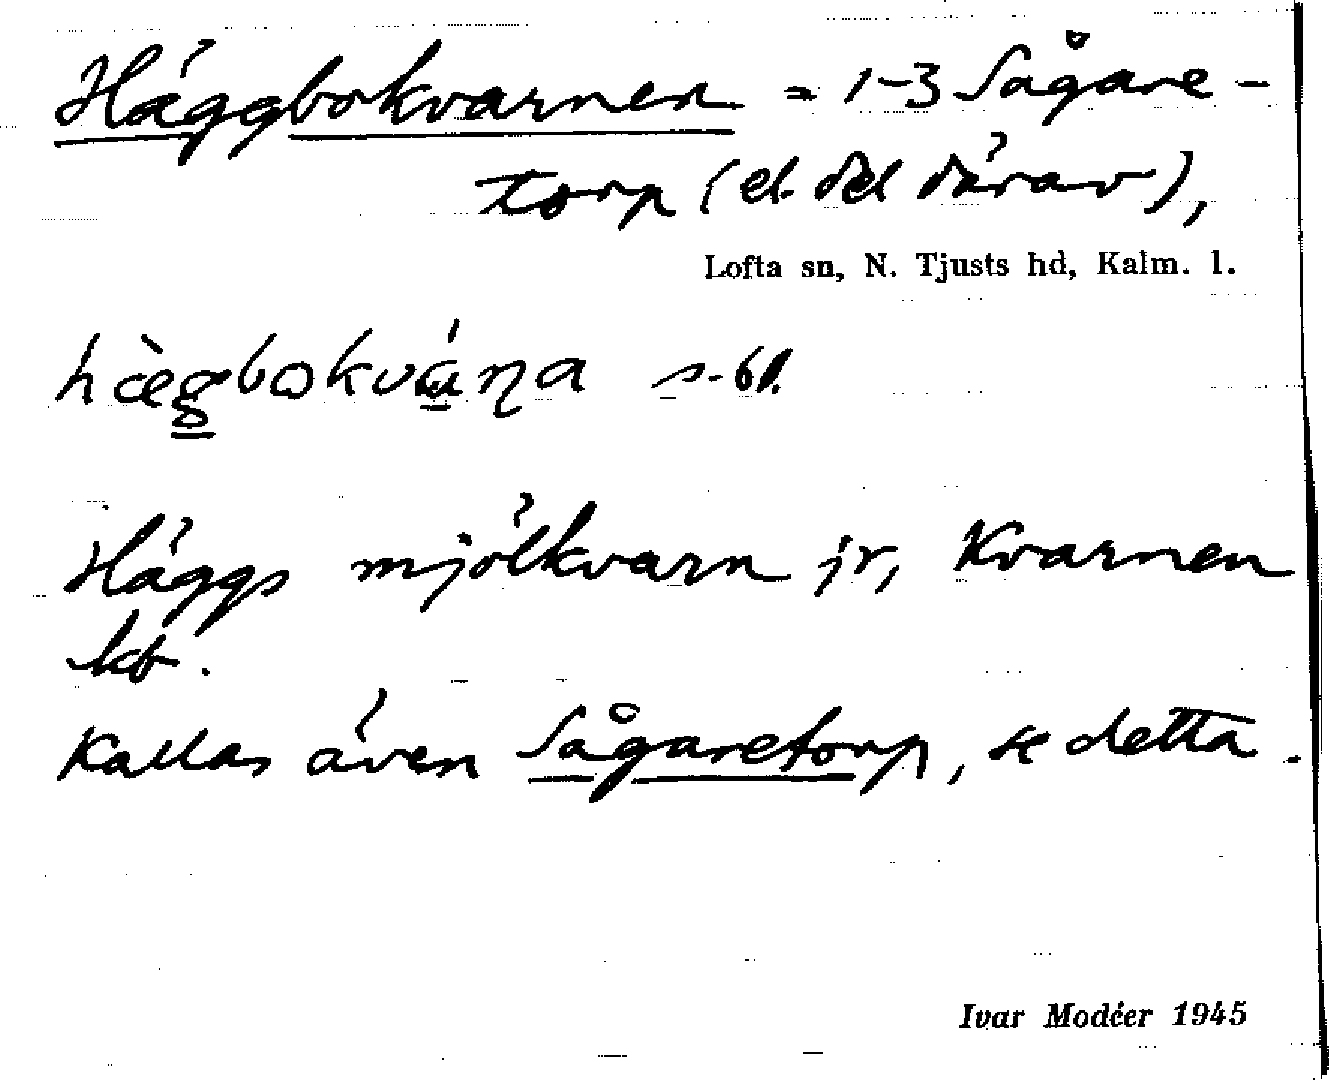 Häggbokvarnen = 1-3 Sågare-
torp (el. del därav),
Lofta sn, N. Tjusts hd, Kalm. l.
hæ̀gbokváɳa s. bf.
Häggs mjölkvarn jr, Kvarnen
kb.
Kallas även Sågaretorp, se detta.
Ivar Modéer 1945